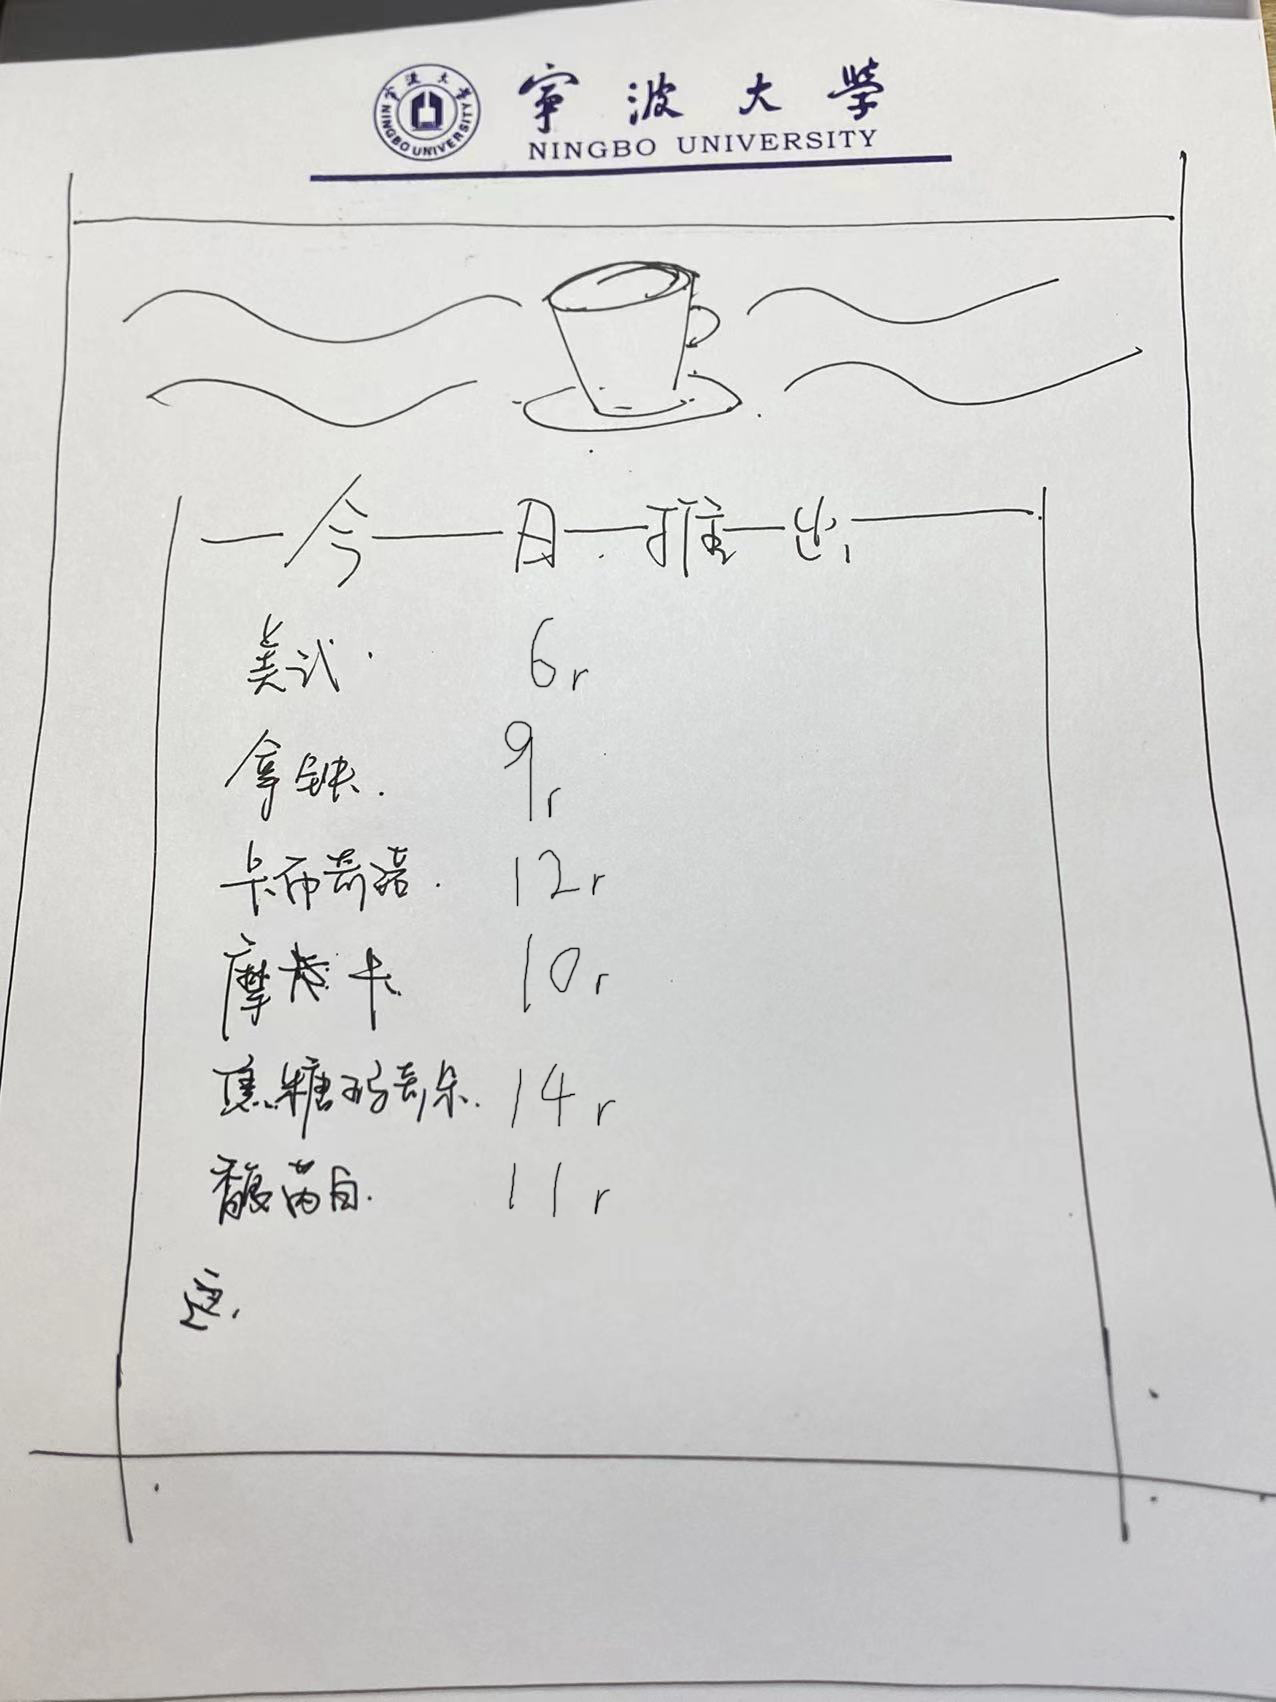 宁波大学
NINGBO UNIVERSITY
宁波大学
NINGBO UNIVERSITY
今日推出
美式 6r
拿铁 9r
卡布奇诺 12r
摩卡 10r
焦糖玛奇朵 14r
馥芮白 11r